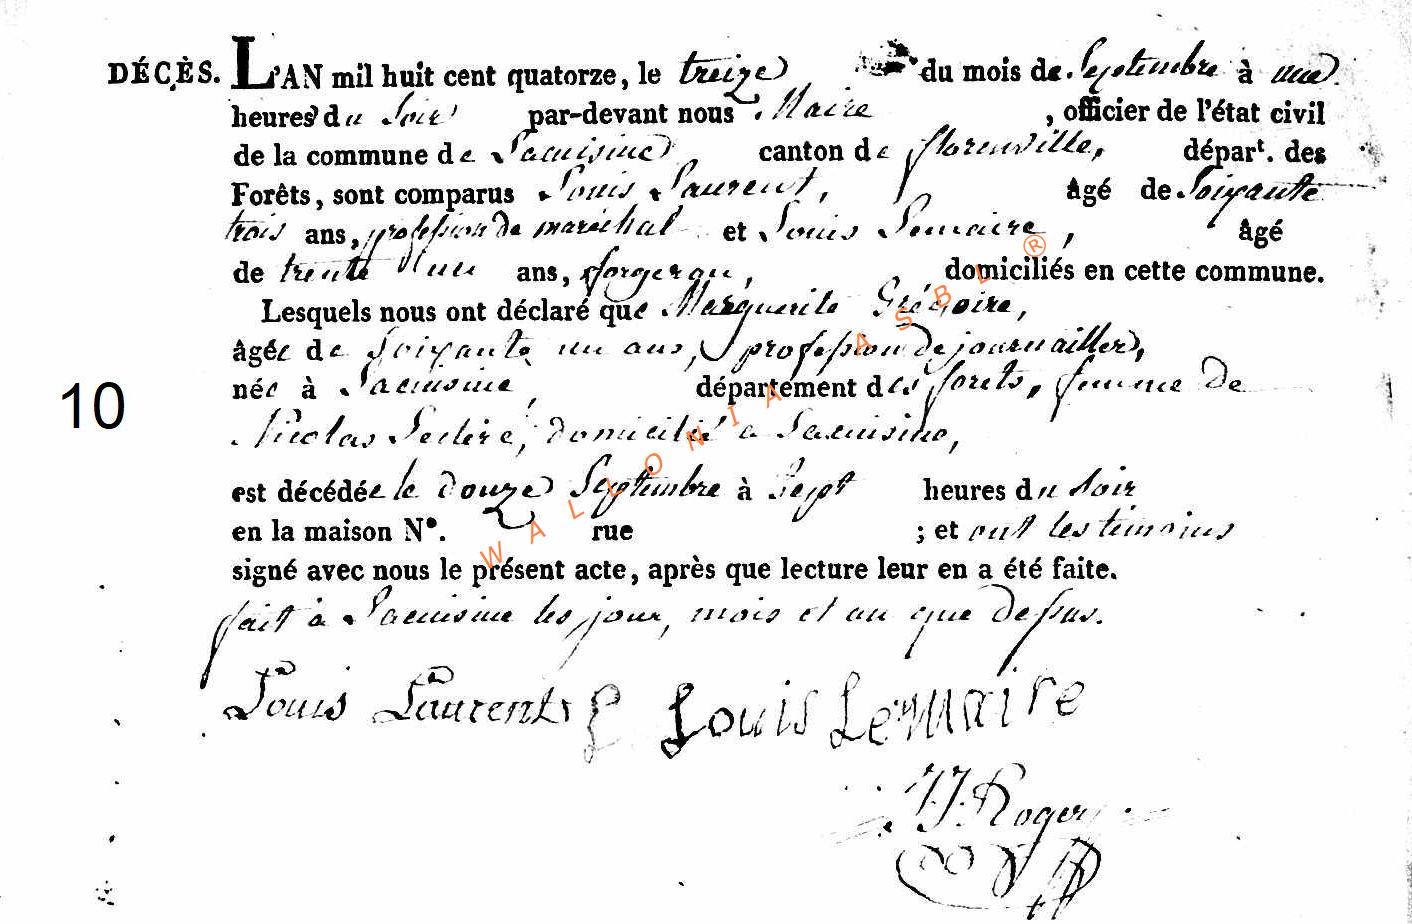 DÉCÈS. L'AN mil huit cent quatorze, le treize du mois de Septembre à une
heures du Soir par-devant nous Maire , officier de l'état civil
de la commune de Lacuisine, canton de florenville, départ. des
Forêts, sont comparus Louis Laurent, âgé de Soixante
trois ans, profession de maréchal et Louis Lemaire, âgé
de trente un ans, forgeron, domiciliés en cette commune.
Lesquels nous ont déclaré que Marguerite Grégoire,
âgée de Soixante un ans, profession de journailler,
née à Lacuisine, département des forets, femme de
10
Nicolas domicilié a Lacuisine,
est décédée le douze Septembre à Sept heures du Soir
en la maison N°. rue ; et ont les temoins
signé avec nous le présent acte, après que lecture leur en a été faite.
fait a Lacuisine les jour, mois et an que dessus.
Louis Laurent Louis Lemaire
J. J. Roger
WALLONIA ASBL ®